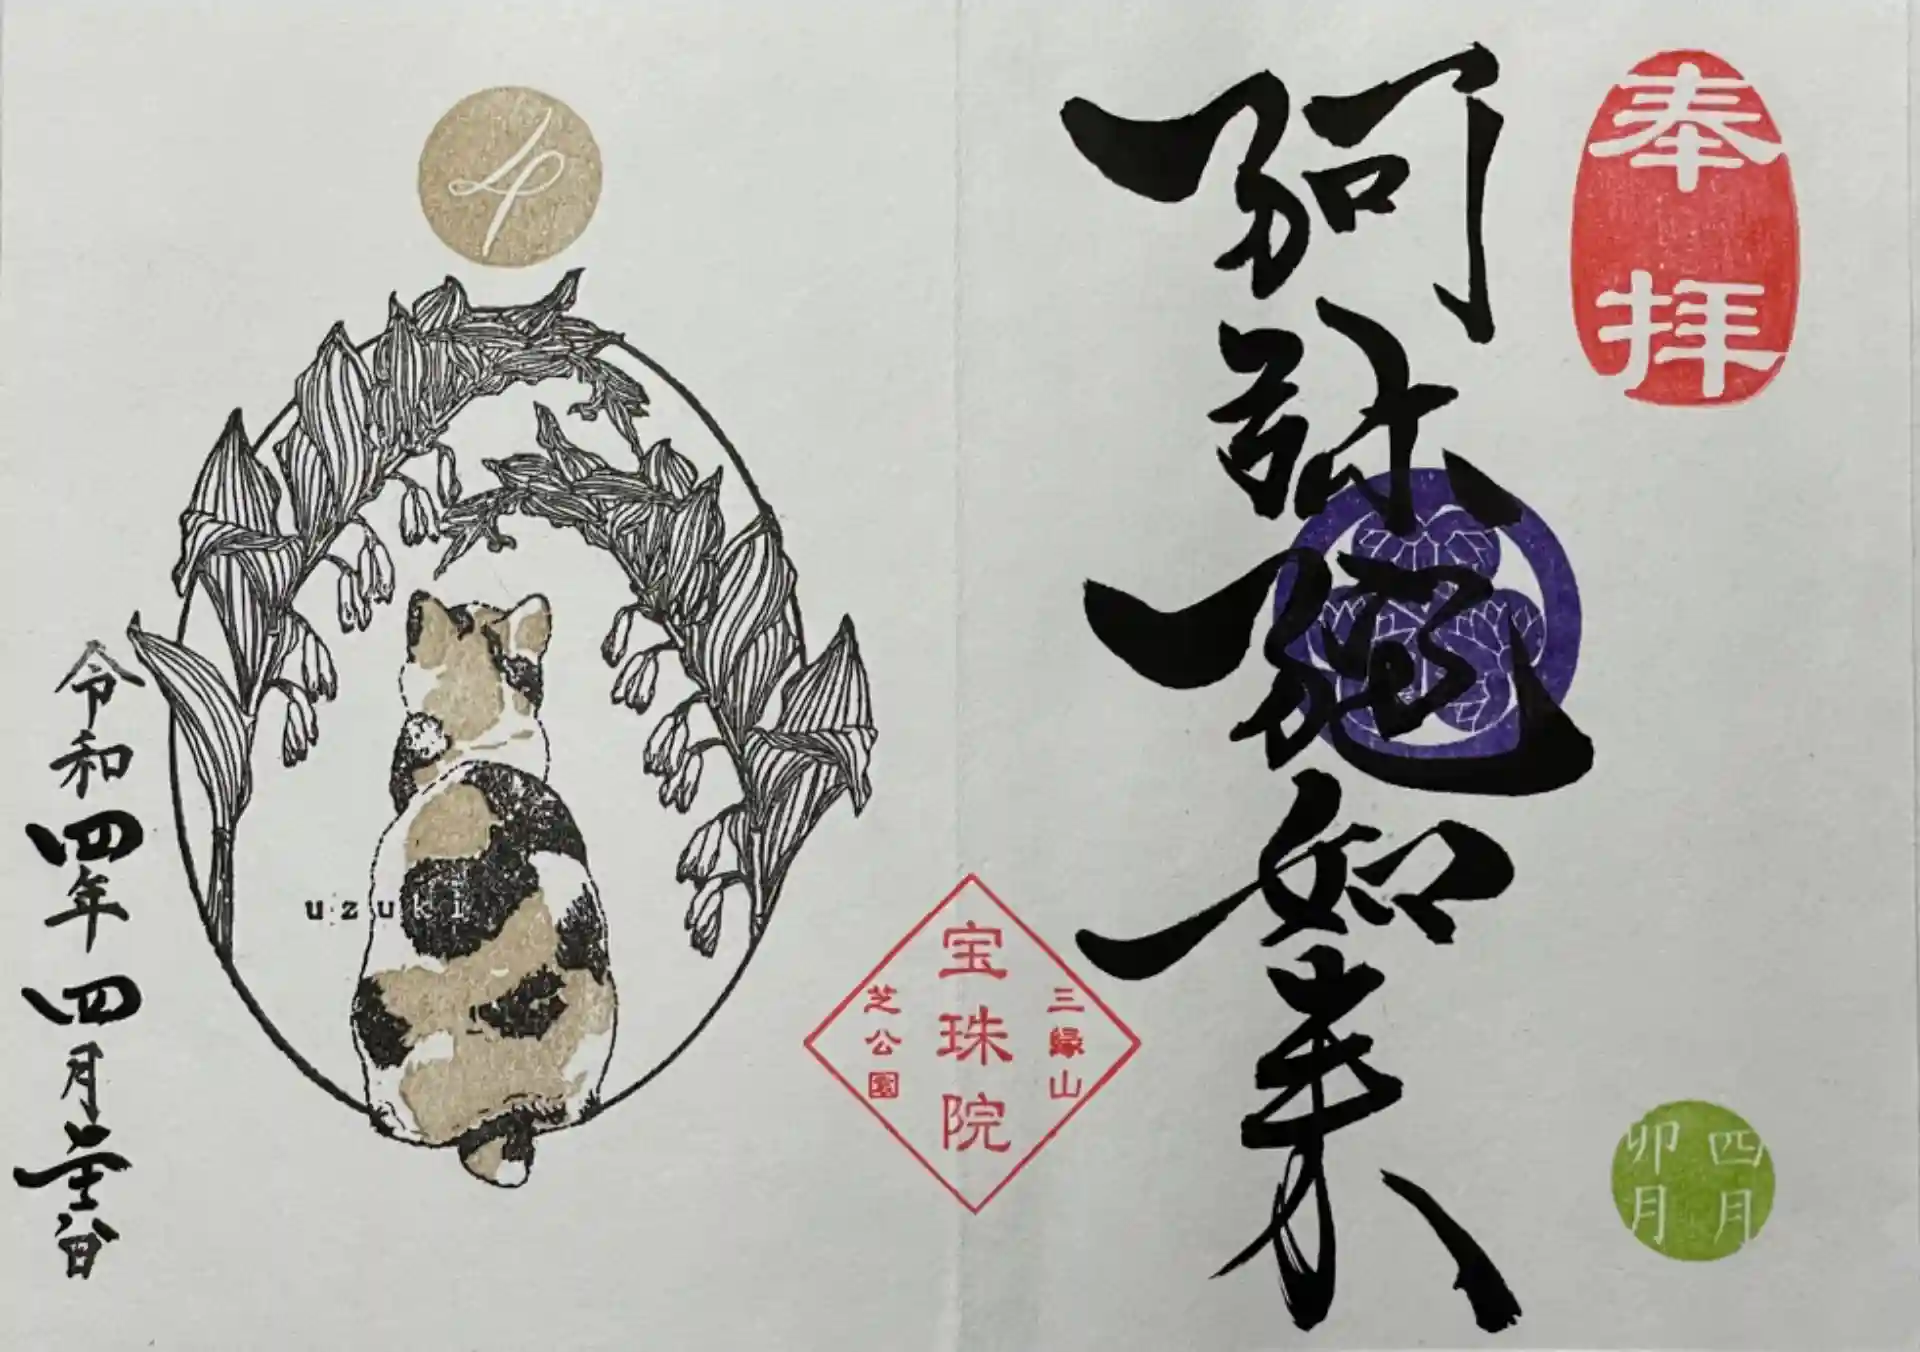 奉拝
阿弥陀如来
四月
卯月
三縁山
宝珠院
芝公園
4
uzuki
令和四年四月